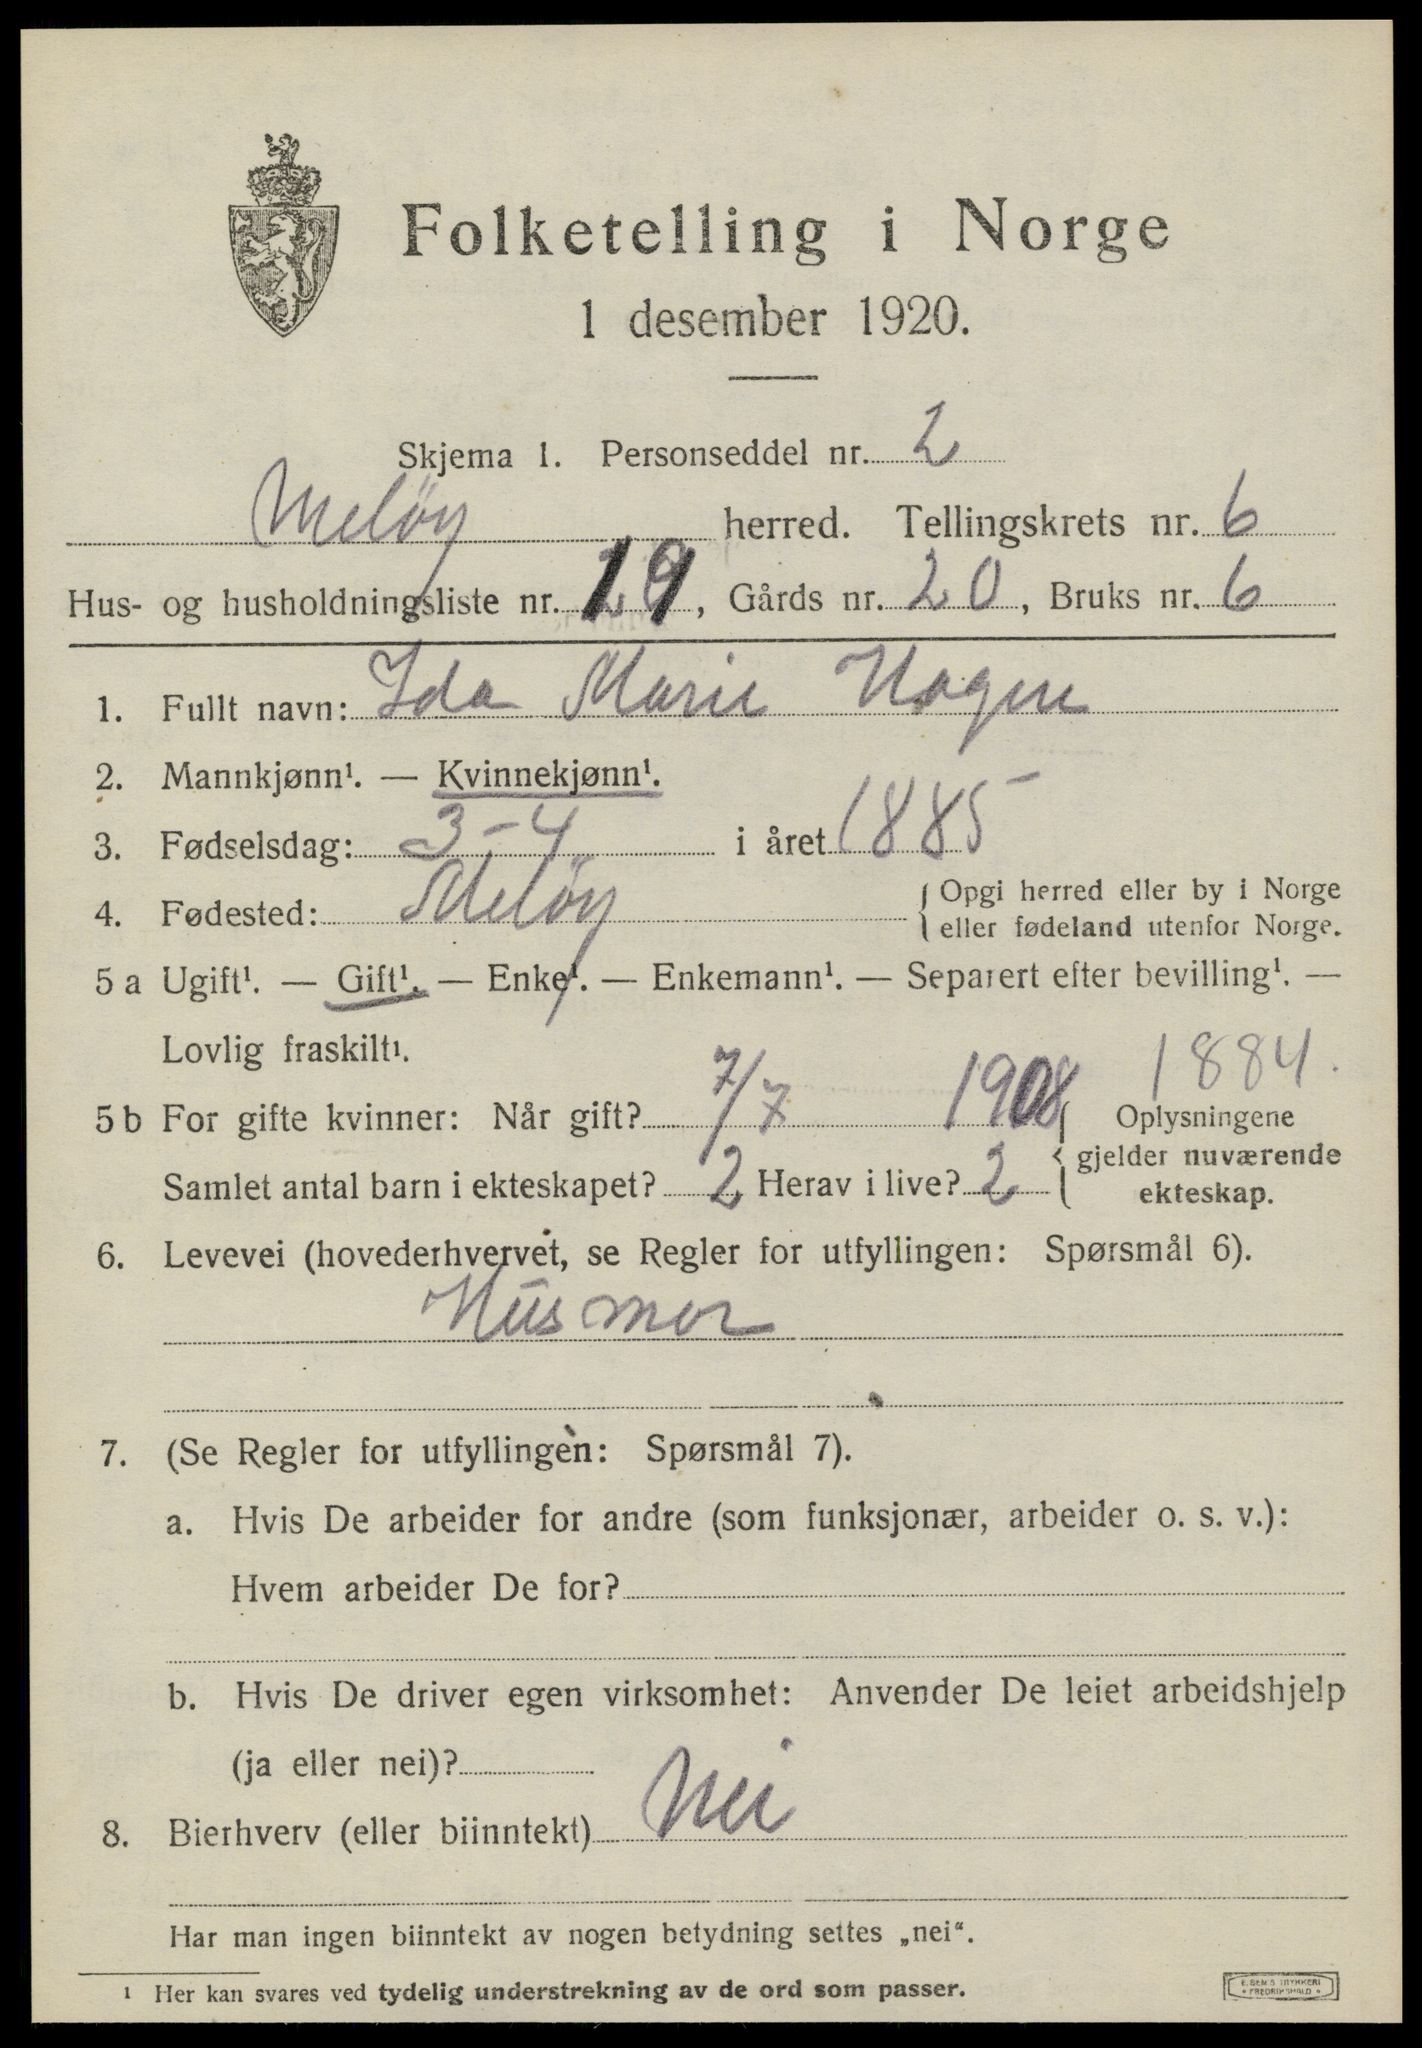 Folketelling i Norge
1 desember 1920.
Skjema 1. Personseddel nr. 2
Meløy herred. Tellingskrets nr. 6
Hus- og husholdningsliste nr. 19, Gårds nr. 20, Bruks nr. 6
1. Fullt navn: Ida Marie Hagen
2. Mannkjønn¹. — Kvinnekjønn¹.
3. Fødselsdag: 3-4 i året 1885
4. Fødested: Meløy { Opgi herred eller by i Norge
eller fødeland utenfor Norge.
5 a Ugift¹. — Gift¹. — Enke¹. — Enkemann¹. — Separert efter bevilling¹. —
Lovlig fraskilt¹.
1884.
5 b For gifte kvinner: Når gift? 7/7 1908 { Oplysningene
gjelder nuværende
Samlet antal barn i ekteskapet? 2 Herav i live? 2 ekteskap.
6. Levevei (hovederhvervet, se Regler for utfyllingen: Spørsmål 6).
Husmor
7. (Se Regler for utfyllingen: Spørsmål 7).
a. Hvis De arbeider for andre (som funksjonær, arbeider o. s. v.):
Hvem arbeider De for?
b. Hvis De driver egen virksomhet: Anvender De leiet arbeidshjelp
(ja eller nei)?
8. Bierhverv (eller biinntekt) Nei
Har man ingen biinntekt av nogen betydning settes „nei“.
¹ Her kan svares ved tydelig understrekning av de ord som passer.
E. SEM'S TRYKKERI
FREDRIKSHALD